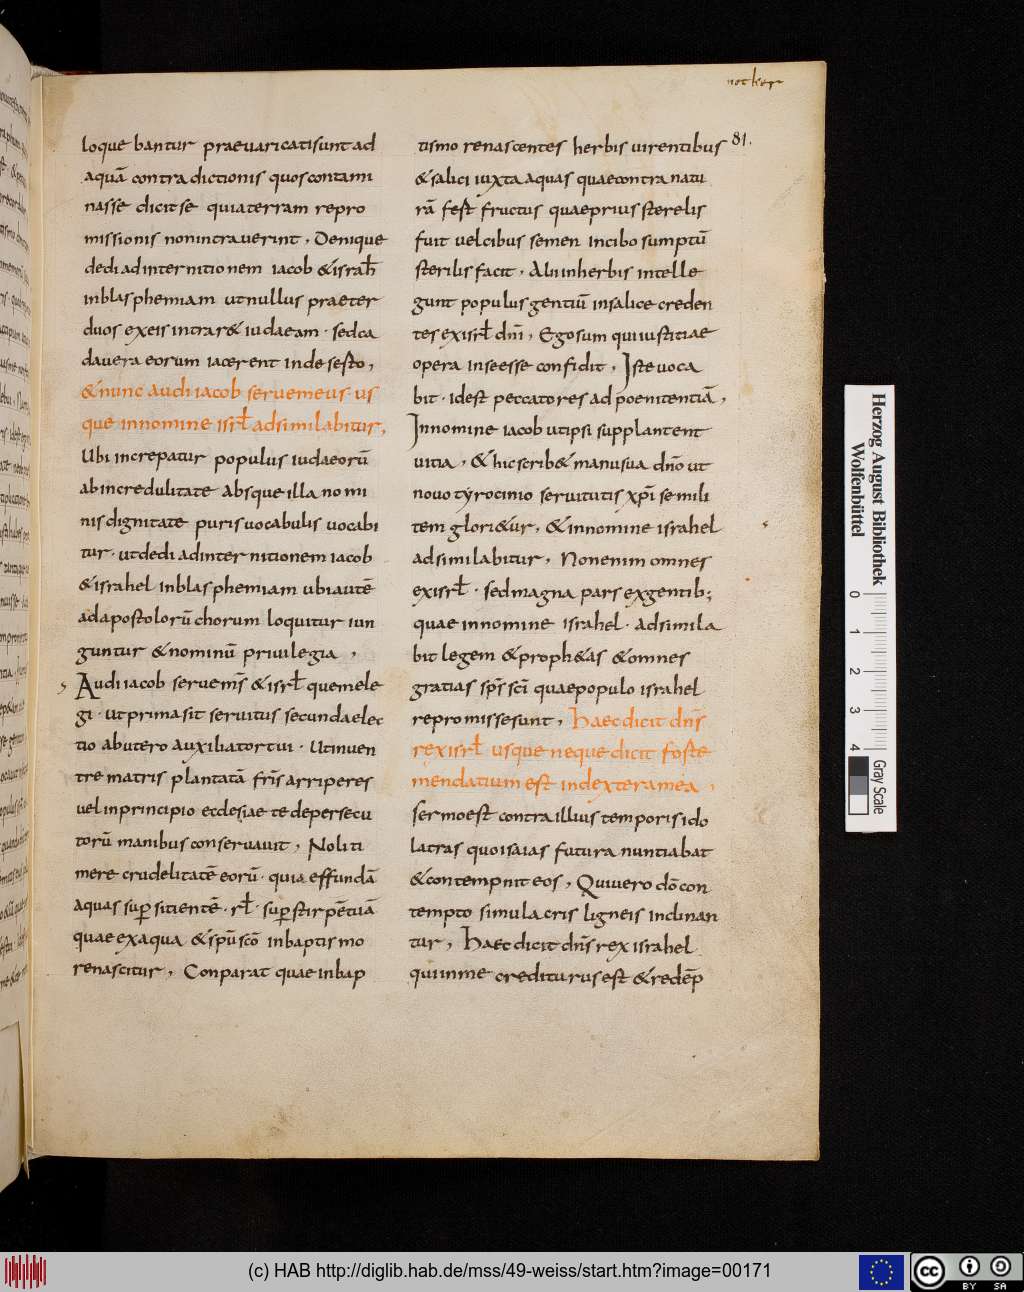 notker
81.
loque bantur praevaricatisuntad
aquā contra dictionis quoscontami
nasse dicit se quiaterram repro
missionis nonintraverint, Denique
dedi adinternitionem iacob &israh̄
inblasphemiam utnullus praeter
duos exeis intrar& iudaeam · sedca
davera eorum iacerent inde serto,
&nunc audi iacob serve meus · us
que innomine isrł adsimilabitur,
Ubi increpatur populus iudaeorū
abincredulitate absque illa nomi
nis dignitate puris vocabulis vocabi
tur · ut dedi adinter nitionem iacob
&israhel inblasphemiam ubi autē
adapostolorū chorum loquitur iun
guntur &nominū privilegia ,
Audi iacob serve m̄s &isrł quem ele
gi · ut prima sit servitus secunda elec
tio abutero auxiliator tui · Utinven
tre matris plantatā fr̄is arriperes
vel inprincipio ecclesiae te depersecu
torū manibus conservavit, Noliti
mere crudelitatē eorū · quia effundā
aquas suꝑ sitientē · rł · suꝑ stirpē tuā
quae exaqua &spū scō inbaptismo
renascitur, Conparat quae inbap
tismo renascentes herbis virentibus
&salici iuxta aquas quae contra natu
rā fest fructus quae prius sterelis
fuit vel cibus semen in cibo sumptū
sterilis facit, Alii inherbis intelle
gunt populus gentiū insalice creden
tes exisrł dn̄i, Ego sum qui iustitiae
opera inseesse confidit, Iste voca
bit · idest peccatores ad poenitentiā,
Innomine iacob utipsi supplantent
vitia, &hic scrib& manu sua dn̄o ut
novo tyrocinio servitutis xp̄i se mili
tem glori&ur, &innomine israhel
adsimilabitur, Non enim omnes
exisrł · sed magna pars exgentib;
quae innomine israhel · adsimila
bit legem &proph&as &omnes
gratias sp̄s sc̄i quae populo israhel
repromisse sunt, Haec dicit dn̄s
rex isrł usque neque dicit forte
mendatium est indextera mea ,
sermo est contra illius temporis ido
latras quo isaias futura nuntiabat
&contempnit eos, Qui vero dō con
tempto simulacris ligneis inclinan
tur, Haec dicit dn̄s rex israhel
qui in me crediturus est &redēp
Herzog August Bibliothek
Wolfenbüttel
0 1 2 3 4
Gray Scale
(c) HAB http://diglib.hab.de/mss/49-weiss/start.htm?image=00171
cc BY SA